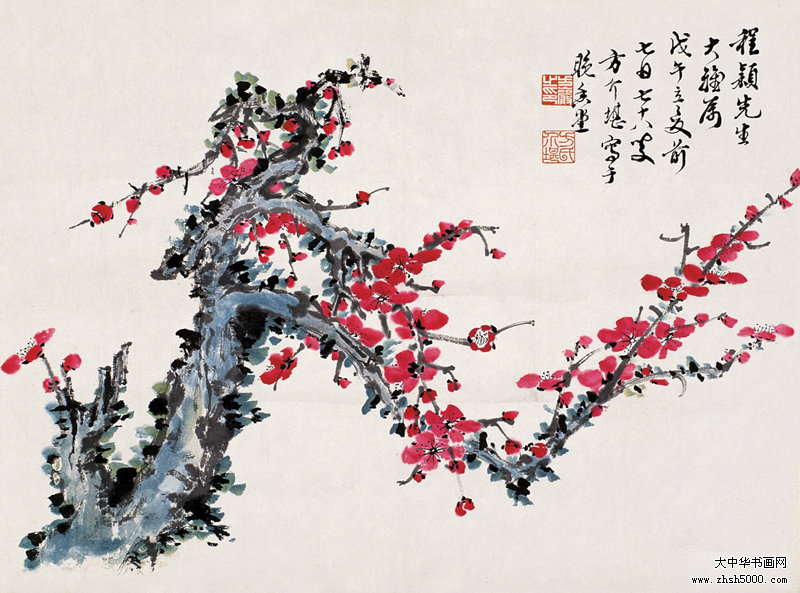 程颖先生
大雅属
戊午立夏前
七日七十八叟
方介堪写于
晚香堂
方氏
介堪
大中华书画网
www.zhsh5000.com